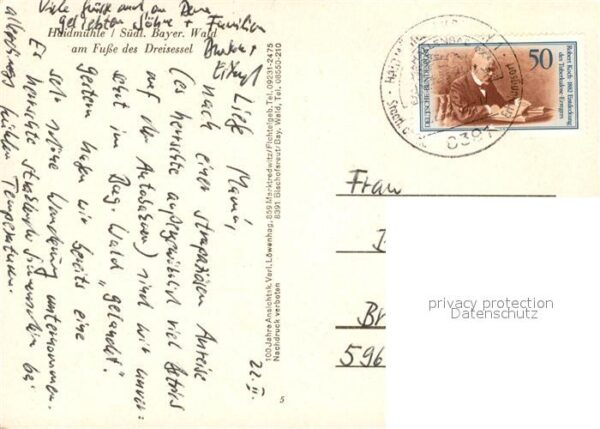 Haidmühle / Südl. Bayer. Wald
am Fuße des Dreisessel
22. II.
Liebe Mama,
nach einer strapaziösen Anreise
(es herrschte außergewöhnlich viel Betrieb
auf der Autobahn) sind wir
jetzt im Bay. Wald „gelandet".
Gestern haben wir bereits eine
sehr schöne Wanderung unternommen.
Es herrschte strahlender Sonnenschein bei
allerdings kühlen Temperaturen.
Viele Grüße auch an Deine
geliebten Söhne + Familien
100 Jahre Ansichtsk. Verl. Löwenhag, 859 Marktredwitz/Fichtelgeb, Tel. 09231-2475
8391 Bischofsreut/Bay. Wald, Tel. 08550-215
Nachdruck verboten
5
50
Robert Koch · 1882 Entdeckung
des Tuberkulose-Erregers
DEUTSCHE BUNDESPOST
8391
Frau
Br
596
privacy protection
Datenschutz